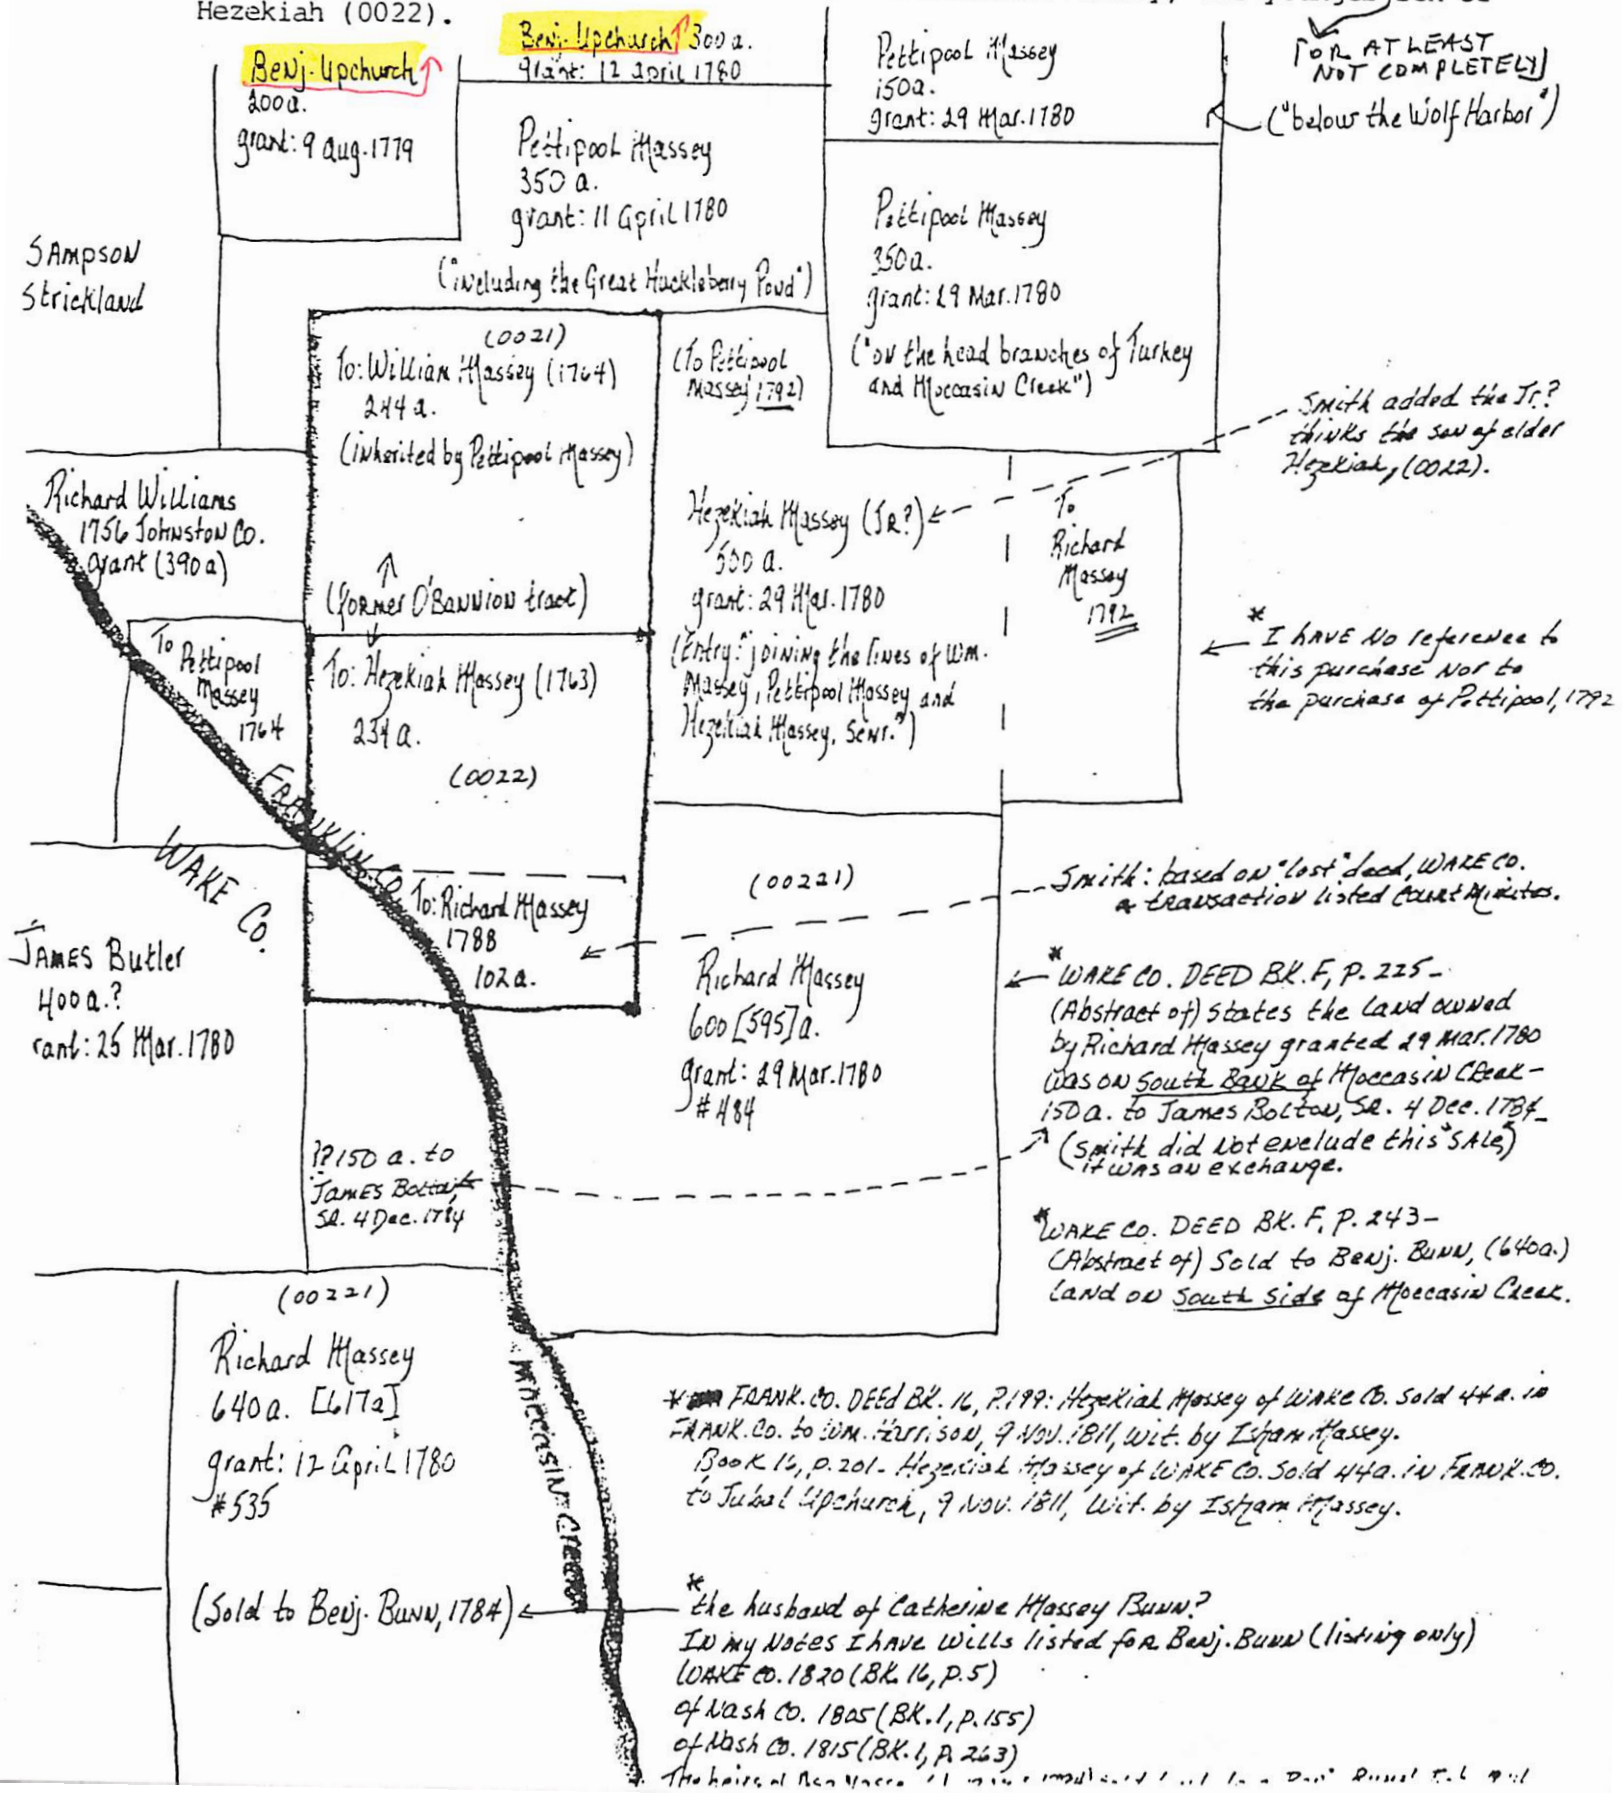 Hezekiah (0022).
[OR AT LEAST
NOT COMPLETELY]
("below the Wolf Harbor")
Benj. Upchurch
200a.
grant: 9 Aug. 1779
Benj. Upchurch 300a.
grant: 12 April 1780
Pettipool Massey
350 a.
grant: 11 April 1780
("including the Great Huckleberry Pond")
Pettipool Massey
150a.
grant: 29 Mar. 1780
Pettipool Massey
350a.
grant: 29 Mar. 1780
("on the head branches of Turkey
and Moccasin Creek")
SAMPSON
Strickland
(0021)
To: William Massey (1764)
244 a.
(inherited by Pettipool Massey)
(former O'Bannion tract)
(To Pettipool
Massey 1792)
Smith added the Jr.?
thinks the son of elder
Hezekiah, (0022).
Richard Williams
1756 Johnston Co.
grant (390a)
Hezekiah Massey (JR?)
500 a.
grant: 29 Mar. 1780
(Entry: "joining the lines of Wm.
Massey, Pettipool Massey and
Hezekiah Massey, Senr.")
To
Richard
Massey
1792
* I HAVE NO reference to
this purchase nor to
the purchase of Pettipool, 1792
To
Pettipool
Massey
1764
To: Hezekiah Massey (1763)
234 a.
(0022)
FRANKLIN CO.
WAKE CO.
To: Richard Massey
1788
102 a.
(00221)
Richard Massey
600 [595] a.
grant: 29 Mar. 1780
#484
Smith: based on "lost" deed, WAKE CO.
a transaction listed Court Minutes.
* WAKE CO. DEED BK. F, P. 225-
(Abstract of) States the land owned
by Richard Massey granted 29 Mar. 1780
was on South Bank of Moccasin Creek-
150 a. to James Bolton, SR. 4 Dec. 1784-
(Smith did not enclude this "SALE")
it was an exchange.
JAMES Butler
400a.?
rant: 25 Mar. 1780
?? 150 a. to
James Bolton,
SR. 4 Dec. 1784
* WAKE CO. DEED BK. F, P. 243-
(Abstract of) Sold to Benj. Bunn, (640a.)
land on South Side of Moccasin Creek.
(00221)
Richard Massey
640 a. [617a]
grant: 12 April 1780
#535
(Sold to Benj. Bunn, 1784)
MOCCASIN CREEK
* FRANK. CO. DEED BK. 16, P. 199: Hezekiah Massey of WAKE CO. Sold 44a. in
FRANK. CO. to Wm. Harrison, 9 Nov. 1811, wit. by Isham Massey.
Book 16, p. 201- Hezekiah Massey of WAKE CO. Sold 44a. in FRANK. CO.
to Jubal Upchurch, 9 Nov. 1811, Wit. by Isham Massey.
* the husband of Catherine Massey Bunn?
In my Notes I have Wills listed for Benj. Bunn (listing only)
WAKE CO. 1820 (BK. 16, P. 5)
of Nash Co. 1805 (BK. 1, P. 155)
of Nash Co. 1815 (BK. 1, P. 263)